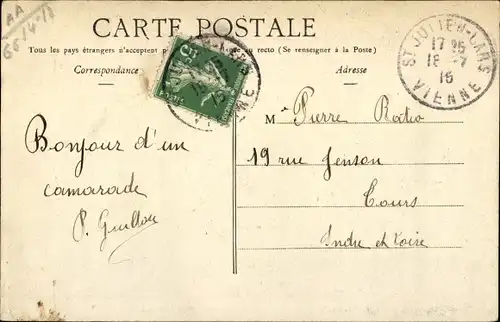 AA
CARTE POSTALE
Tous les pays étrangers n'acceptent au recto (Se renseigner à la Poste)
Correspondance
Adresse
ST JULIEN-LARS
17 25
18 -7
15
VIENNE
M Pierre Ratio
19 rue Jenson
Tours
Indre et Loire
Bonjour d'un
camarade
P. Guillou